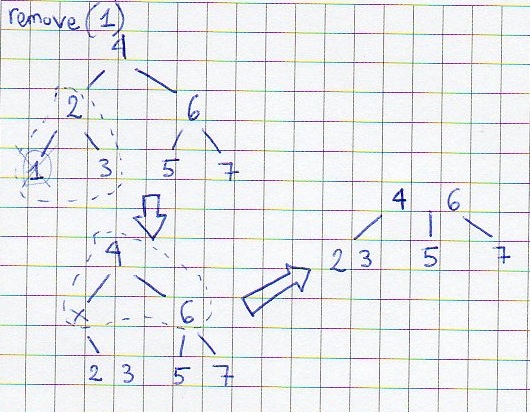 remove(1)
4
2 6
1 3 5 7
4 6
2 3 5 7
4
x 6
2 3 5 7